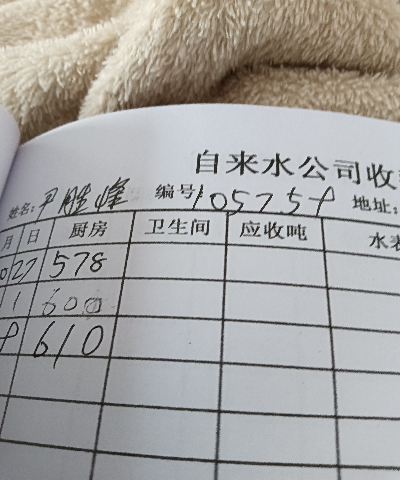 自来水公司收
姓名: 尹胜峰 编号 105759 地址:
月 日 厨房 卫生间 应收吨 水表
27 578
1 600
9 610